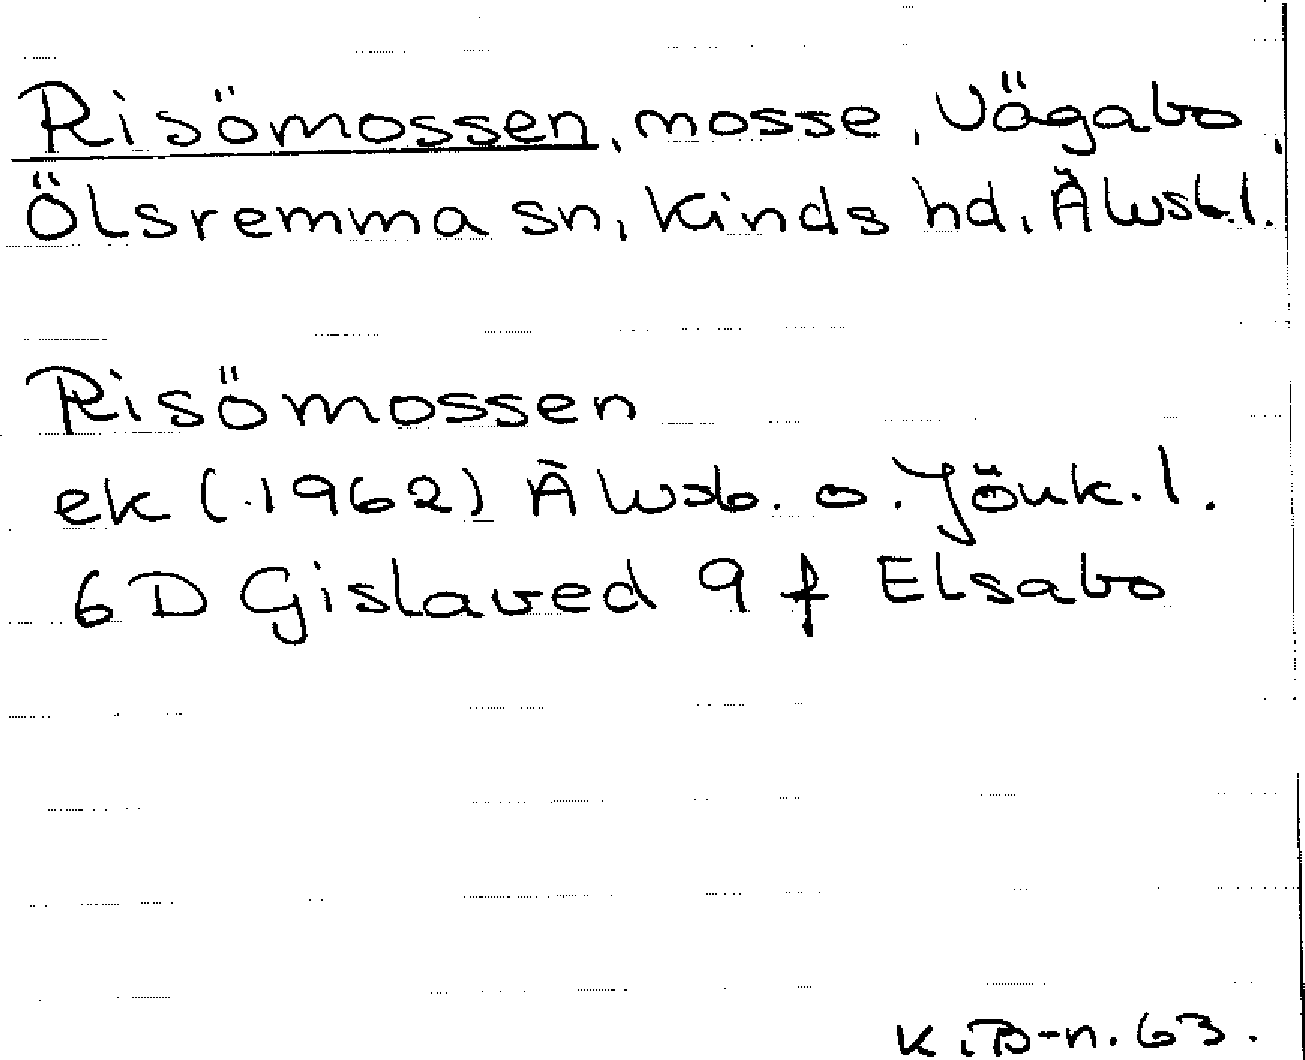 Risömossen, mosse, Vägabo,
Ölsremma sn, Kinds hd, Älvsb.l.
Risömossen
ek (.1962) Älvsb. o. Jönk.l.
6D Gislaved 9 f Elsabo
K.B-n. 63.